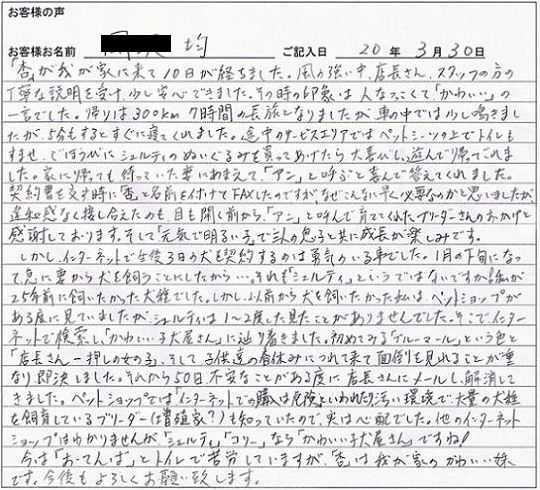 お客様の声
お客様お名前 均 ご記入日 20年 3月30日
「杏」が我が家に来て10日が経ちました。風の強い中、店長さん、スタッフの方の
丁寧な説明を受け、少し安心できました。その時の印象は人なつこくて「かわいい」の
一言でした。帰りは300km 7時間の長旅となりましたが車の中では少し鳴きまし
たが、5分もするとすぐに寝てくれました。途中のサービスエリアではペットシーツの上でトイレも
すませ、ごほうびにシェルティのぬいぐるみを買ってあげたら大喜びし、遊んで帰ってこれま
した。家に帰っても待っていた妻にあまえて「アン」と呼ぶと喜んで答えてくれました。
契約書を交す時に「杏」と名前を付けてFAXしたのですが、なぜこんなに早く必要なのかと思いましたが、
違和感なく接し合えたのも、目も開く前から、「アン」と呼んで育ててくれた、ブリーダーさんのおかげと
感謝しております。そして「元気で明るい子」で三人の息子と共に成長が楽しみです。
しかし、インターネットで生後3日の犬を契約するのは勇気のいる事でした。1月の下旬になっ
て急に妻から犬を飼うことにしたから…。それも「シェルティ」というではないですか!私が
25年前に飼いたかった犬種でした。しかし、以前から犬を飼いたかった私は、ペットショップが
ある度に見ていましたがシェルティは1〜2度した見たことがありませんでした。そこで、インター
ネットで検索し、「かわいい子犬屋さん」に辿り着きました。初めてみる「ブルーマール」という色と
「店長さん一押しの女の子」、そして子供達の春休みにつれて来て面倒を見れることが重
なり、即決しました。それから50日、不安なことがある度に店長さんにメールし、解消して
きました。ペットショップでは「インターネットでの購入は危険」といわれたり、汚い環境で、大量の犬種
を飼育しているブリーダー(繁殖家?)も知っていたので、実は心配でした。他のインターネット
ショップはわかりませんが、「シェルティ」「コリー」なら「かわいい子犬屋さん」ですね!
今は「おーてんば」とトイレで苦労していますが、「杏」は我が家のかわいい妹
です。今後もよろしくお願い致します。